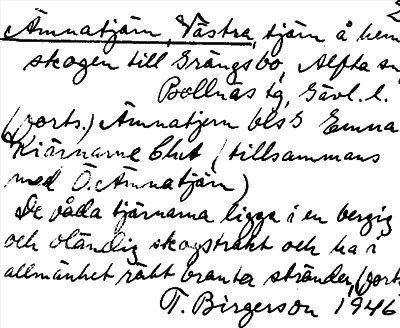 Ämnatjärn, Västra, tjärn å hem
skogen till Grängsbo, Alfta sn,
Bollnäs tg, Gävl. l.
(forts.) Ämnatjern bl 5 Emna
Kiärnarne Chct (tillsammans
med Ö. Ämnatjärn)
De våda tjärnarna ligga i en bergig
och oländig skogstrakt och ha i
allmänhet rätt branta stränder, (forts
T. Birgerson 1946